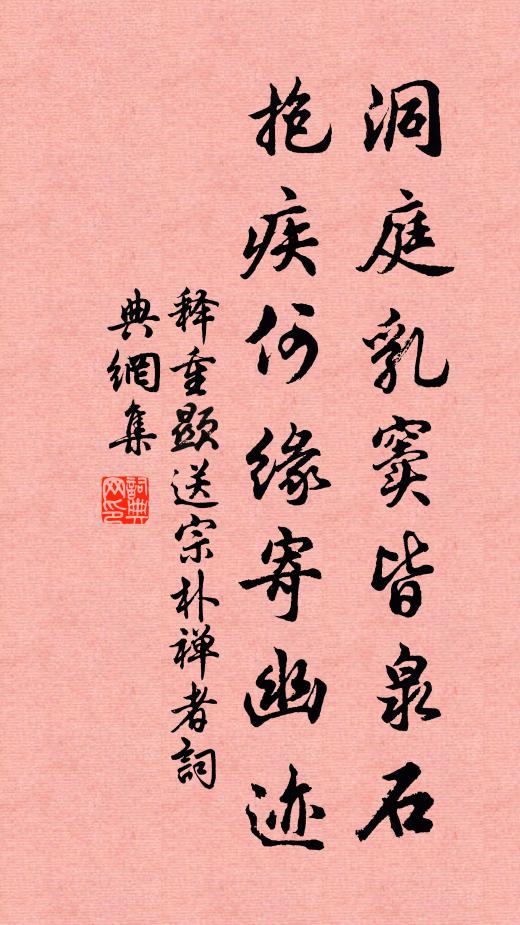 洞庭乳窦皆泉石
抱疾何缘寄幽迹
释重顕送宗朴禅者詞
典網集
詞典
网印